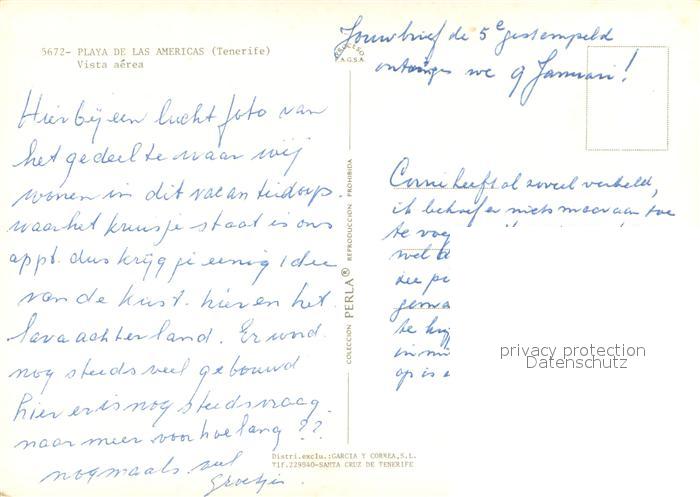 5672- PLAYA DE LAS AMERICAS (Tenerife)
Vista aérea
Hierbij een luchtfoto van
het gedeelte waar wij
wonen in dit vacantiedorp
waar het kruisje staat is ons
appt. dus krijg je eenig idee
van de kust. hier en het
lava achterland. Er word
nog steeds veel gebouwd
hier er is nog steeds vraag.
naar meer voor hoelang ??
nogmaals veel
Groetjes.
PROCESO
F.A.G.S.A.
Jouw brief de 5e gestempeld
ontvingen we 9 Januari!
Corrie heeft al zoveel verteld,
ik behoef er niets meer aan toe
te voeg
wel d
zee
gema
te krij
in mi
op is
COLECCION PERLA® REPRODUCCION PROHIBIDA
privacy protection
Datenschutz
Distri.exclu.:GARCIA Y CORREA,S.L.
Tlf.229840-SANTA CRUZ DE TENERIFE